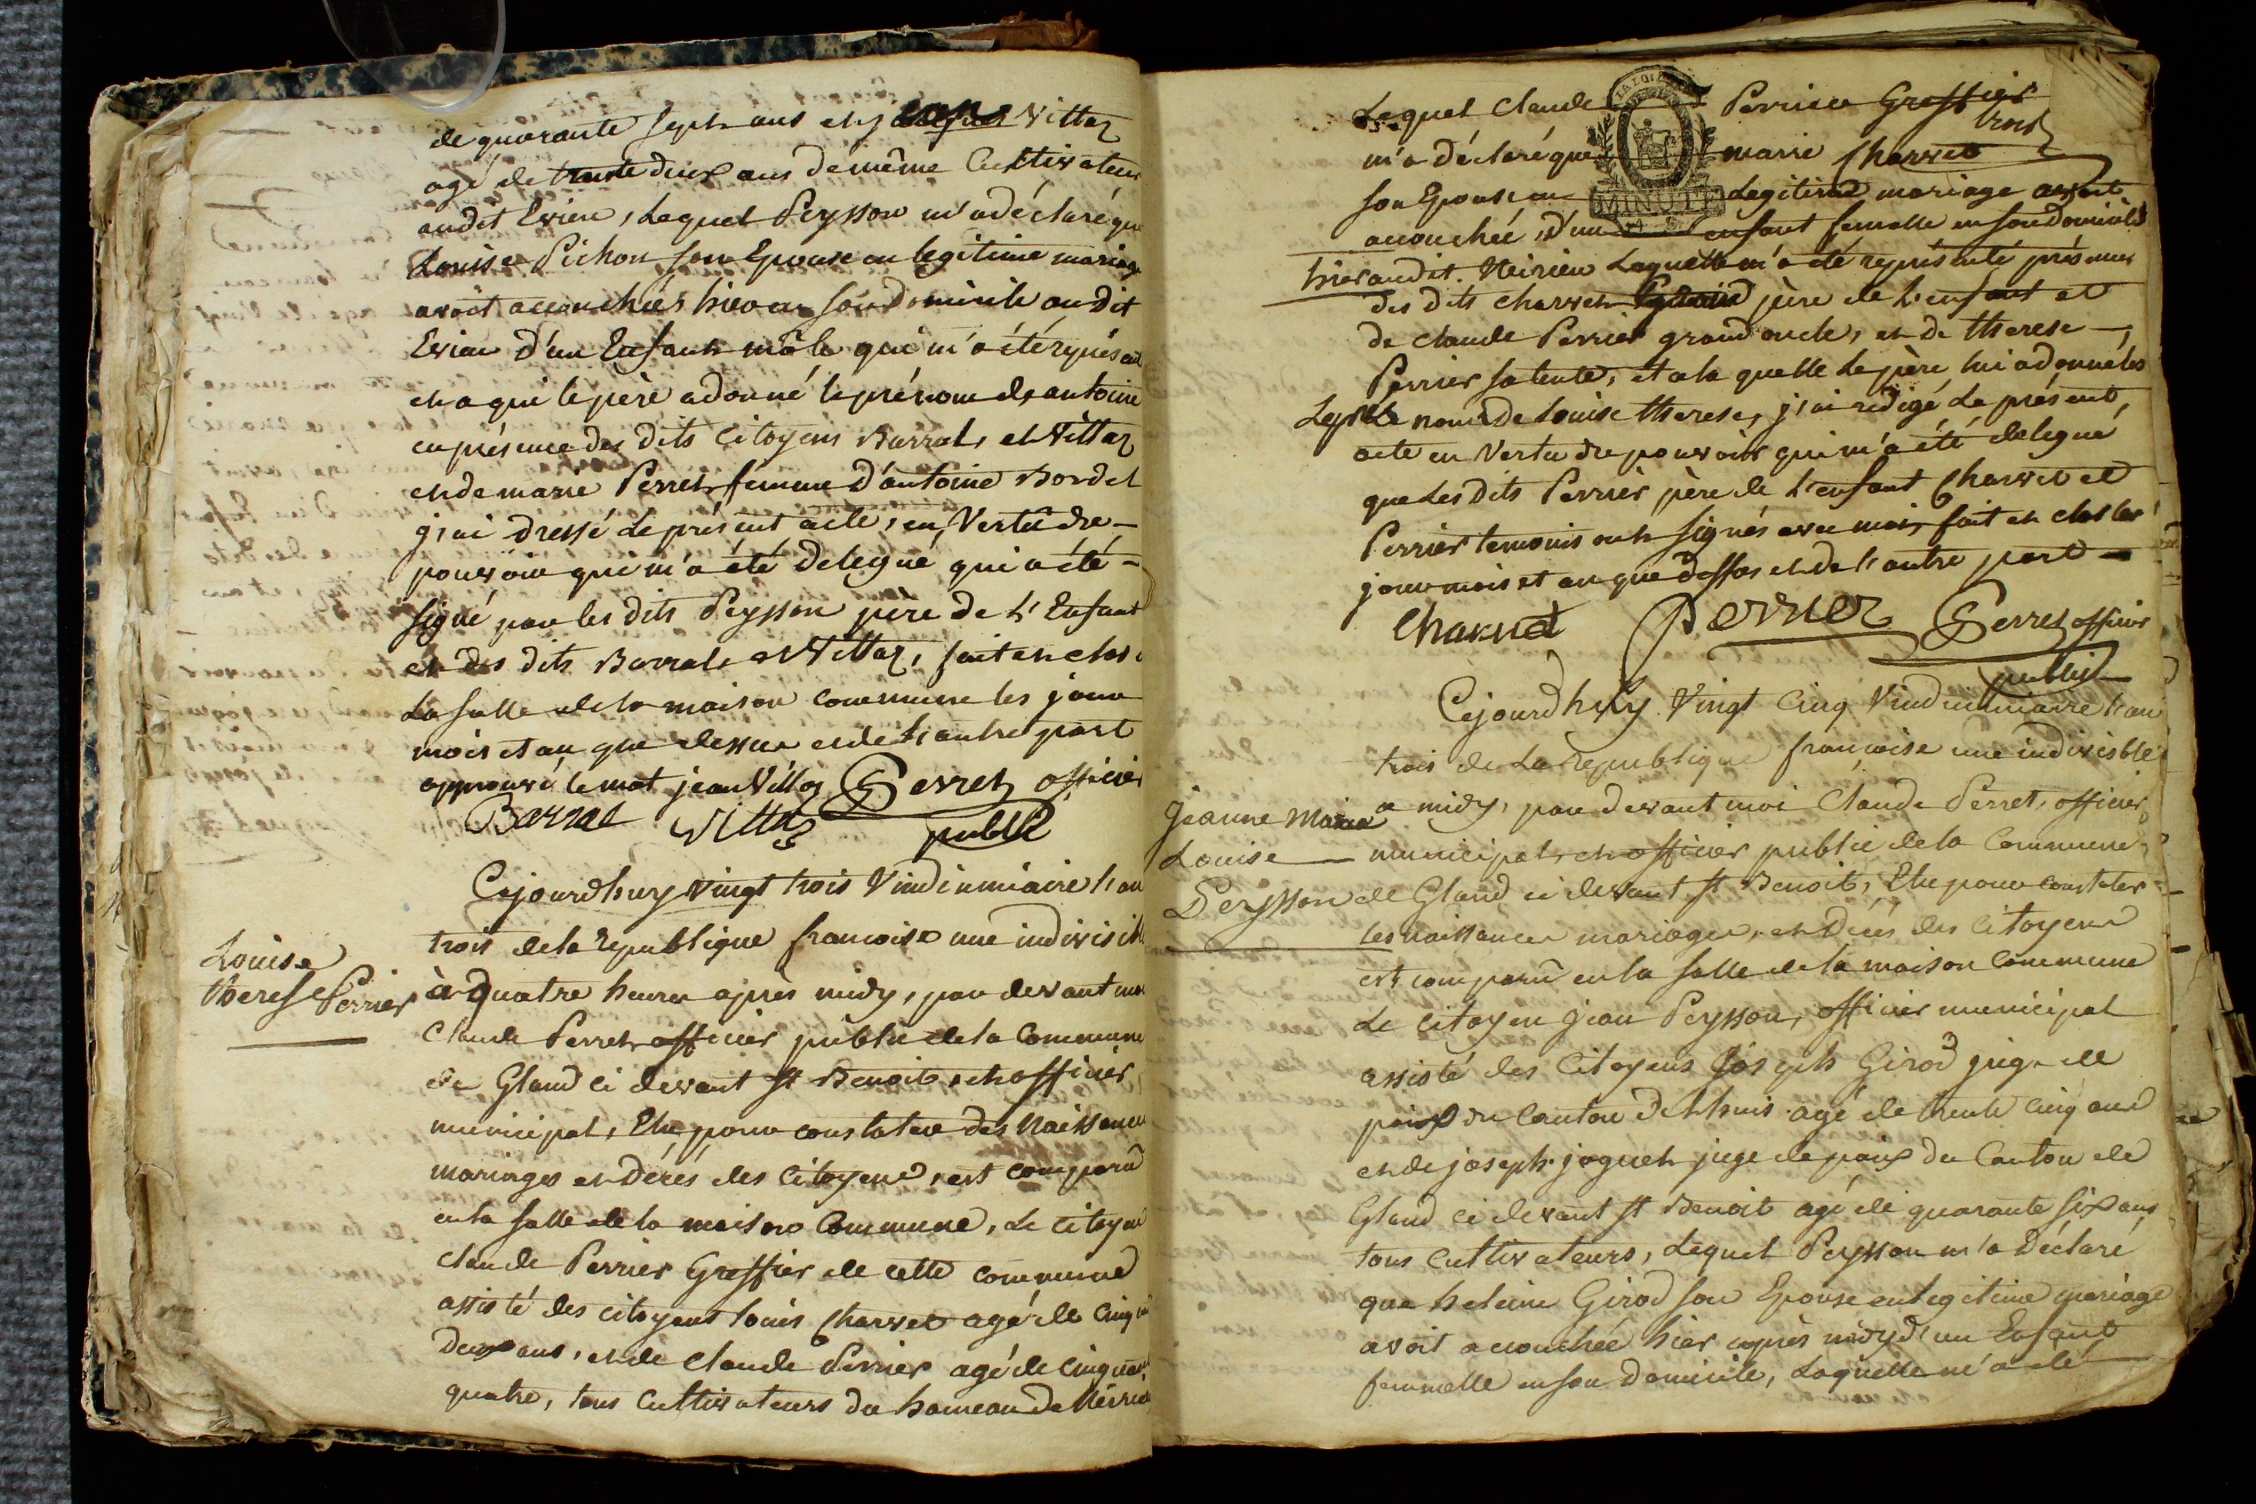 de quarante sept ans et j Vittoz
agé de trente deux ans de même Cultivateur
audit Evieu, Lequel Peysson m'a déclaré que
Louise Pichon son Epouse en legitime mariage
avoit accouchée hier en son domicile audit
Evieu d'un Enfant mâle qui m'a été représenté
et a qui le père a donné le prénom de antoine
en présence des dits Citoyens Barral, et Vittoz
et de marie Perret femme d'antoine Bordel
j'ai dressé le présent acte, en Vertu de
pouvoir qui m'a été délegué qui a été
signé par les dits Peysson père de L'Enfant
et des dits Barral et Vittoz, fait et clos a
La salle de la maison commune les jour
mois et an que dessus et de L'autre part
approuvé le mot jean Vittoz Perret officier
Barral Vittoz public
Louise
therese Perrier
Cejourdhuy vingt trois Vindemiaire L'an
trois de la République francoise une indivisible
à quatre heures après midy, par devant moi
Claude Perret officier public de la Commune
de Gland ci devant St Benoit, et officier
municipal, Elu pour constater des Naissances
mariages et décés des Citoyens, est comparû
en la salle de la maison Commune, Le Citoyen
Claude Perrier Greffier de cette commune
assisté des citoyens Louis Charvet agé de Cinquante
Deux ans, et de Claude Perrier agé de Cinquante
quatre, tous Cultivateurs du hameau de
Lequel Claude Perrier Greffier
m'a déclaré que marie Charvet
son Epouse en Legitime mariage avoit
accouchée, d'un enfant femelle en son domicile
hier audit Laquelle m'a été représenté présence
des dits charvet père de L'enfant et
de claude Perrier grand oncle, et de therese
Perrier sa tente, et a la quelle le père lui a donné les
nom de Louise therese, j'ai redigé Le présent
acte en Vertu de pouvoir qui m'a été delegué
que Les dits Perrier père de L'enfant Charvet et
Perrier temoins ont signés avec moi, fait et clos les
jour mois et an que dessus et de L'autre part
Charvet Perrier Perret officier
public
Jeanne Marie
Louise
Peysson
Cejourdhuy Vingt Cinq Vindemiaire L'an
trois de La République françoise une indivisible
a midy, par devant moi Claude Perret, officier
municipal, et officier public de la Commune
de Gland ci devant St Benoit, Elu pour constater
les naissances mariages, et Décés des Citoyens
est comparû en la salle de la maison Commune
Le Citoyen jean Peysson, officier municipal
assisté des Citoyens Joseph Girod juge de
paix du Canton de Lhuis agé de trente cinq ans
et de joseph joguet juge de paix du Canton de
Gland ci devant St Benoit agé de quarante six ans
tous Cultivateurs, Lequel Peysson m'a déclaré
que heleine Girod son Epouse en legitime mariage
avoit accouchée hier après midy d'un Enfant
femmelle en son Domicile, Laquelle m'a été